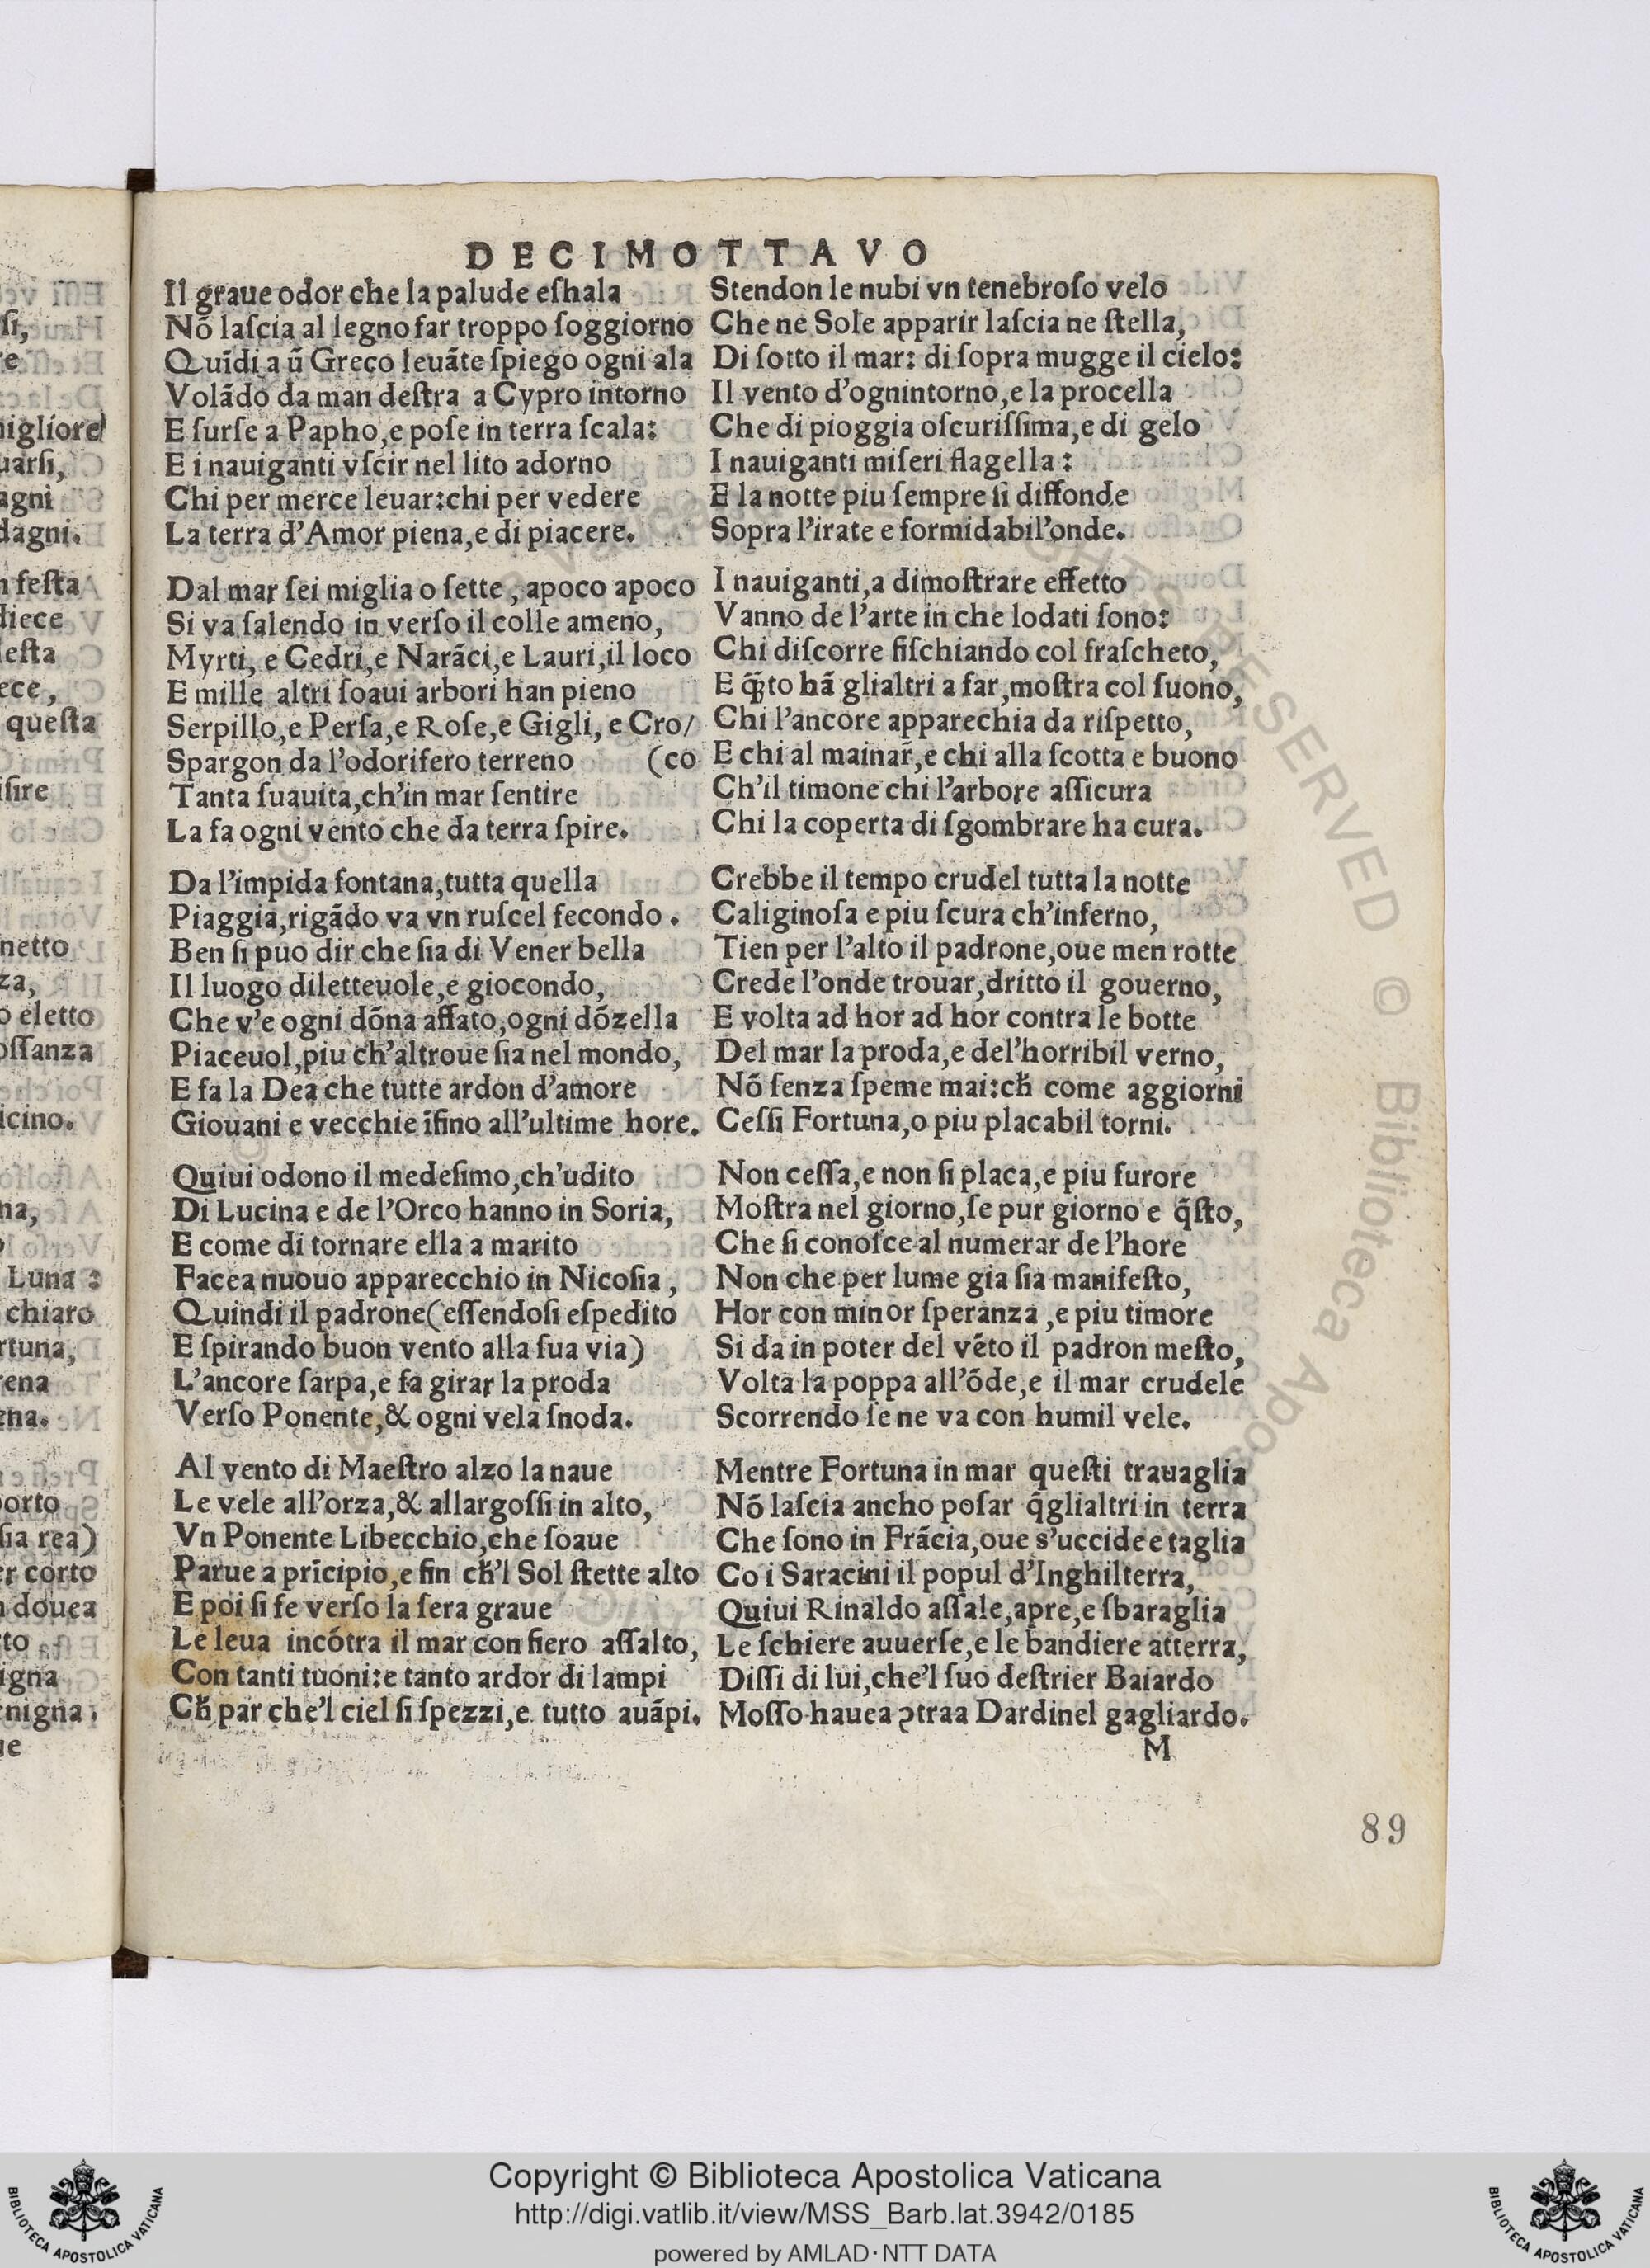 DECIMOTTAVO
Il graue odor che la palude eſhala
Nõ laſcia al legno far troppo ſoggiorno
Quĩdi a ũ Greco leuãte ſpiego ogni ala
Volãdo da man deſtra a Cypro intorno
E ſurſe a Papho,e poſe in terra ſcala:
E i nauiganti vſcir nel lito adorno
Chi per merce leuar:chi per vedere
La terra d'Amor piena,e di piacere.
Dal mar ſei miglia o ſette, apoco apoco
Si va ſalendo in verſo il colle ameno,
Myrti, e Cedri,e Narãci,e Lauri,il loco
E mille altri ſoaui arbori han pieno
Serpillo,e Perſa,e Roſe,e Gigli, e Cro/
Spargon da l'odorifero terreno (co
Tanta ſuauita,ch'in mar ſentire
La fa ogni vento che da terra ſpire.
Da l'impida fontana,tutta quella
Piaggia,rigãdo va vn ruſcel fecondo.
Ben ſi puo dir che ſia di Vener bella
Il luogo diletteuole,e giocondo,
Che v'e ogni dõna affato,ogni dõzella
Piaceuol,piu ch'altroue ſia nel mondo,
E fa la Dea che tutte ardon d'amore
Giouani e vecchie ĩfino all'ultime hore.
Quiui odono il medeſimo,ch'udito
Di Lucina e de l'Orco hanno in Soria,
E come di tornare ella a marito
Facea nuouo apparecchio in Nicoſia,
Quindi il padrone(eſſendoſi eſpedito
E ſpirando buon vento alla ſua via)
L'ancore ſarpa,e fa girar la proda
Verſo Ponente,& ogni vela ſnoda.
Al vento di Maeſtro alzo la naue
Le vele all'orza,& allargoſſi in alto,
Vn Ponente Libecchio,che ſoaue
Parue a prĩcipio,e fin cħ'l Sol ſtette alto
E poi ſi fe verſo la ſera graue
Le leua incõtra il mar con fiero aſſalto,
Con tanti tuoni:e tanto ardor di lampi
Cħ par che'l ciel ſi ſpezzi,e tutto auãpi.
Stendon le nubi vn tenebroſo velo
Che ne Sole apparir laſcia ne ſtella,
Di ſotto il mar: di ſopra mugge il cielo:
Il vento d'ognintorno,e la procella
Che di pioggia oſcuriſſima,e di gelo
I nauiganti miſeri flagella:
E la notte piu ſempre ſi diffonde
Sopra l'irate e formidabil'onde.
I nauiganti,a dimoſtrare effetto
Vanno de l'arte in che lodati ſono:
Chi diſcorre fiſchiando col fraſcheto,
E q̃to hã glialtri a far,moſtra col ſuono,
Chi l'ancore apparechia da riſpetto,
E chi al mainar̃,e chi alla ſcotta e buono
Ch'il timone chi l'arbore aſſicura
Chi la coperta di ſgombrare ha cura.
Crebbe il tempo crudel tutta la notte
Caliginoſa e piu ſcura ch'inferno,
Tien per l'alto il padrone,oue men rotte
Crede l'onde trouar,dritto il gouerno,
E volta ad hor ad hor contra le botte
Del mar la proda,e del'horribil verno,
Nõ ſenza ſpeme mai:cħ come aggiorni
Ceſſi Fortuna,o piu placabil torni.
Non ceſſa,e non ſi placa,e piu furore
Moſtra nel giorno,ſe pur giorno e q̃ſto,
Che ſi conoſce al numerar de l'hore
Non che per lume gia ſia manifeſto,
Hor con minor ſperanza,e piu timore
Si da in poter del vẽto il padron meſto,
Volta la poppa all'õde,e il mar crudele
Scorrendo ſe ne va con humil vele.
Mentre Fortuna in mar queſti trauaglia
Nõ laſcia ancho poſar q̃glialtri in terra
Che ſono in Frãcia,oue s'uccide e taglia
Co i Saracini il popul d'Inghilterra,
Quiui Rinaldo aſſale,apre,e ſbaraglia
Le ſchiere auuerſe,e le bandiere atterra,
Diſſi di lui,che'l ſuo deſtrier Baiardo
Moſſo hauea ↄtraa Dardinel gagliardo.
M
89
Copyright © Biblioteca Apostolica Vaticana
http://digi.vatlib.it/view/MSS_Barb.lat.3942/0185
powered by AMLAD·NTT DATA
BIBLIOTECA APOSTOLICA VATICANA
BIBLIOTECA APOSTOLICA VATICANA